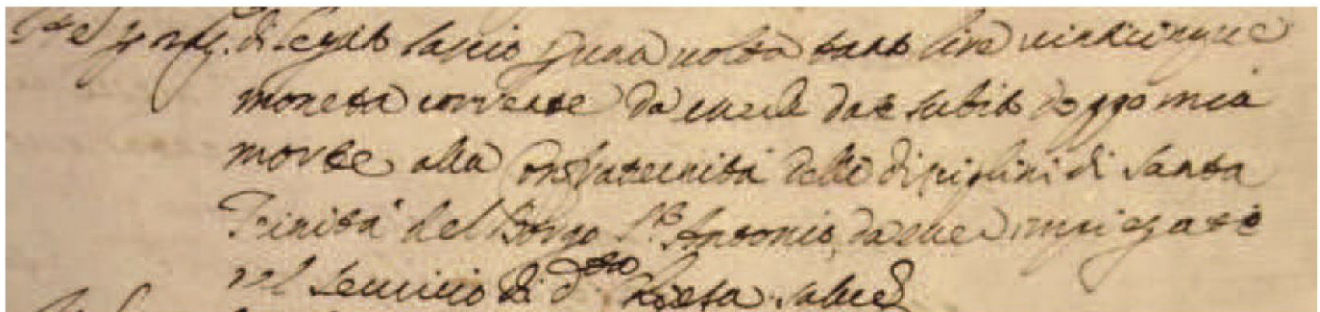 Ite p rag. di legato lascio p una volta tanto lire vinticinque
moneta corrente da essere date subito doppo mia
morte alla Confraternità delli disciplini di Santa
Trinità del Borgo S.to Antonio, da esser impiegate
nel servicio di d.ta Chiesa salve